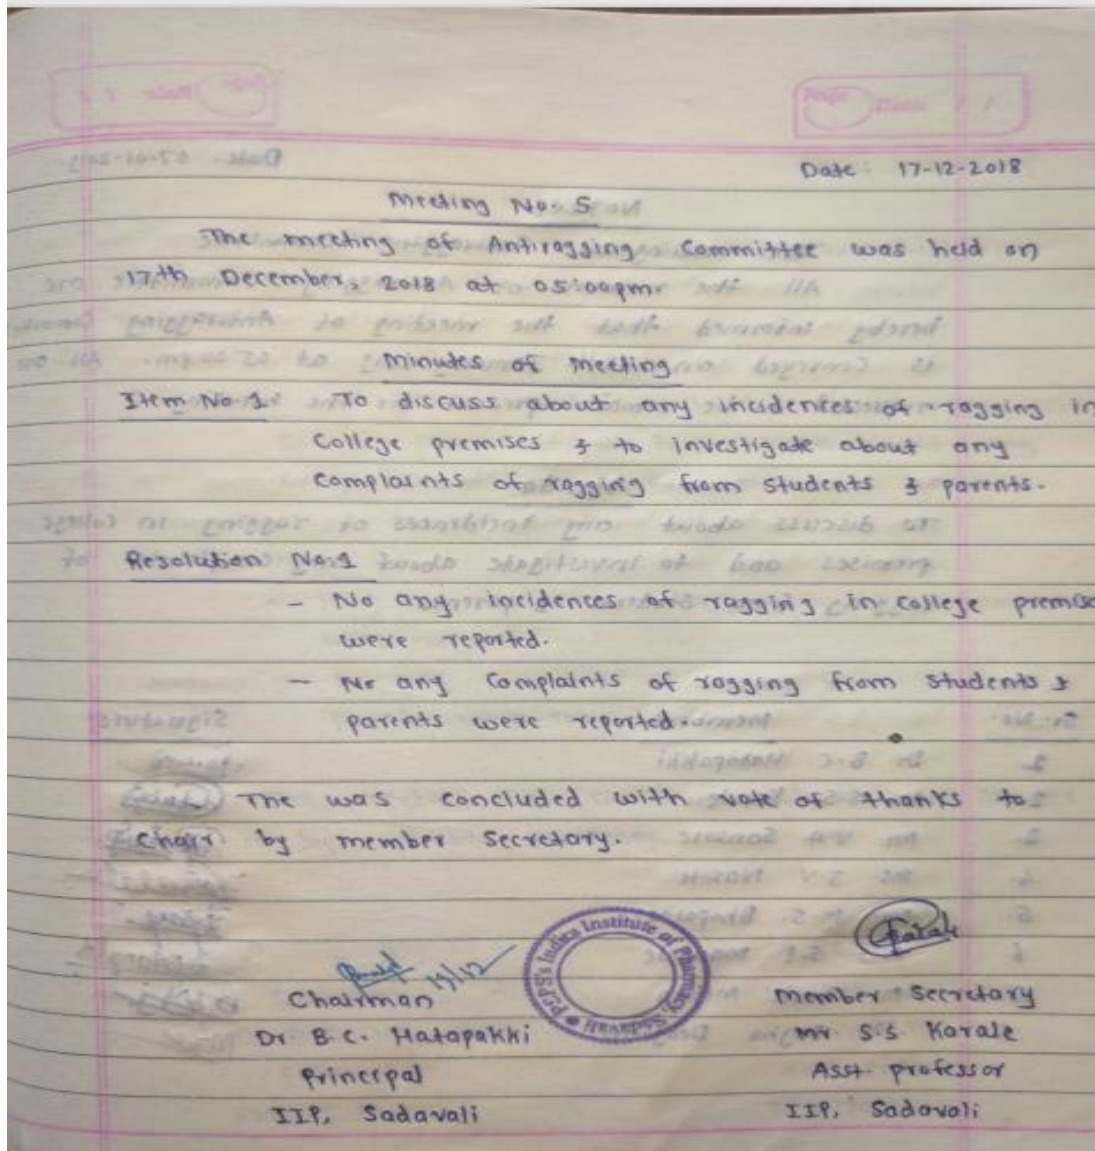 Page Date / /
Date : 17-12-2018
Meeting No: 5
The meeting of Antiragging Committee was held on
17th December, 2018 at 05:00pm.
Minutes of meeting
Item No 1 To discuss about any incidences of ragging in
College premises & to investigate about any
Complaints of ragging from students & parents.
Resolution No:1
- No any incidences of ragging in college premise
were reported.
- No any Complaints of ragging from students &
parents were reported.
The was concluded with vote of thanks to
Chair by member Secretary.
PCPS's Indira Institute of Pharmacy, Sadavali
17/12
Karale
Chairman
Member Secretary
Dr B.C. Hatapakki
Mr S.S. Karale
Principal
Asst professor
IIP, Sadavali
IIP, Sadavali